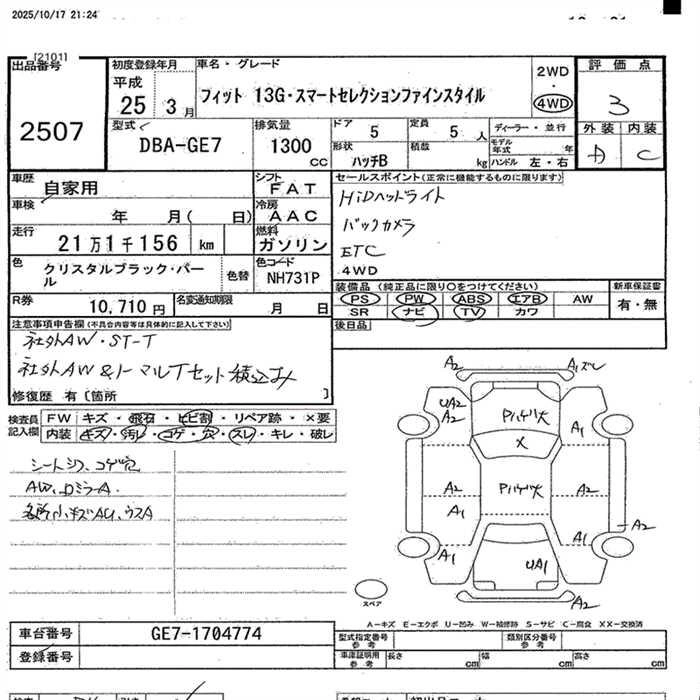 2025/10/17 21:24
[2101]
出品番号 初度登録年月 車名・グレード 2WD 評価点
平成 ・
2507 25 3月 フィット 13G・スマートセレクションファインスタイル 4WD 3
型式 排気量 ドア 5 定員 5人 ディーラー・並行 外装 内装
DBA-GE7 1300 cc 形状 ハッチB 積載 kg モデル年式 年 ハンドル 左・右 D C
車歴 自家用 シフト FAT セールスポイント(正常に機能するものに限ります)
車検 年 月( 日) 冷房 AAC HiDヘッドライト
走行 21万1千156 km 燃料 ガソリン バックカメラ
色 クリスタルブラック・パール 色替 色コード NH731P ETC
4WD
R券 10,710円 名変通知期限 月 日 装備品(純正品に限り○をつけてください) 新車保証書
PS PW ABS エアB AW 有・無
SR ナビ TV カワ
注意事項申告欄(不具合内容等は具体的に記入して下さい) 後日品
社外AW・ST-T
社外AW&ノーマルTセット積込み
修復歴 有〔箇所 〕
検査員記入欄 FW キズ・飛石・ヒビ割・リペア跡・×要
内装 キズ・汚レ・コゲ・穴・スレ・キレ・破レ
シートシワ、コゲ穴
AW、ロミラーA
各所小キズAU、ウスA
A2 A1ズレ
UA2 A2 Pハゲ大 A1
X
A2 Pハゲ大 A2
A1 A2
A1 UA1 A1
A2
スペア
A-キズ E-エクボ U-凹み W-補修跡 S-サビ C-腐食 XX-交換済
車台番号 GE7-1704774 型式指定番号 参考 類別区分番号 参考
登録番号 車庫証明用 参考 長さ cm 幅 cm 高さ cm